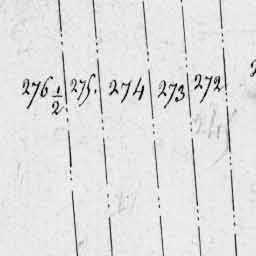 276 1/2 275. 274 273 272